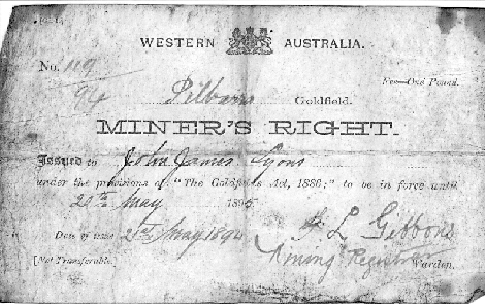 WESTERN AUSTRALIA.
No. 119/94
Fee—One Pound.
Pilbarra Goldfield.
MINER'S RIGHT.
Issued to John James Lyons
under the provisions of "The Goldfields Act, 1886;" to be in force until
20th May 1895
Date of issue 21st May 1894
L Gibbons
Mining Registrar
[Not Transferable.] Warden.